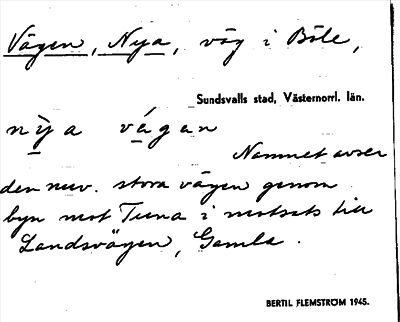 Vägen, Nya, väg i Böle,
Sundsvalls stad, Västernorrl. län.
nỳa vágan
Namnet avser
den nuv. stora vägen genom
byn mot Tuna i motsats till
Landsvägen, Gamla.
BERTIL FLEMSTRÖM 1945.